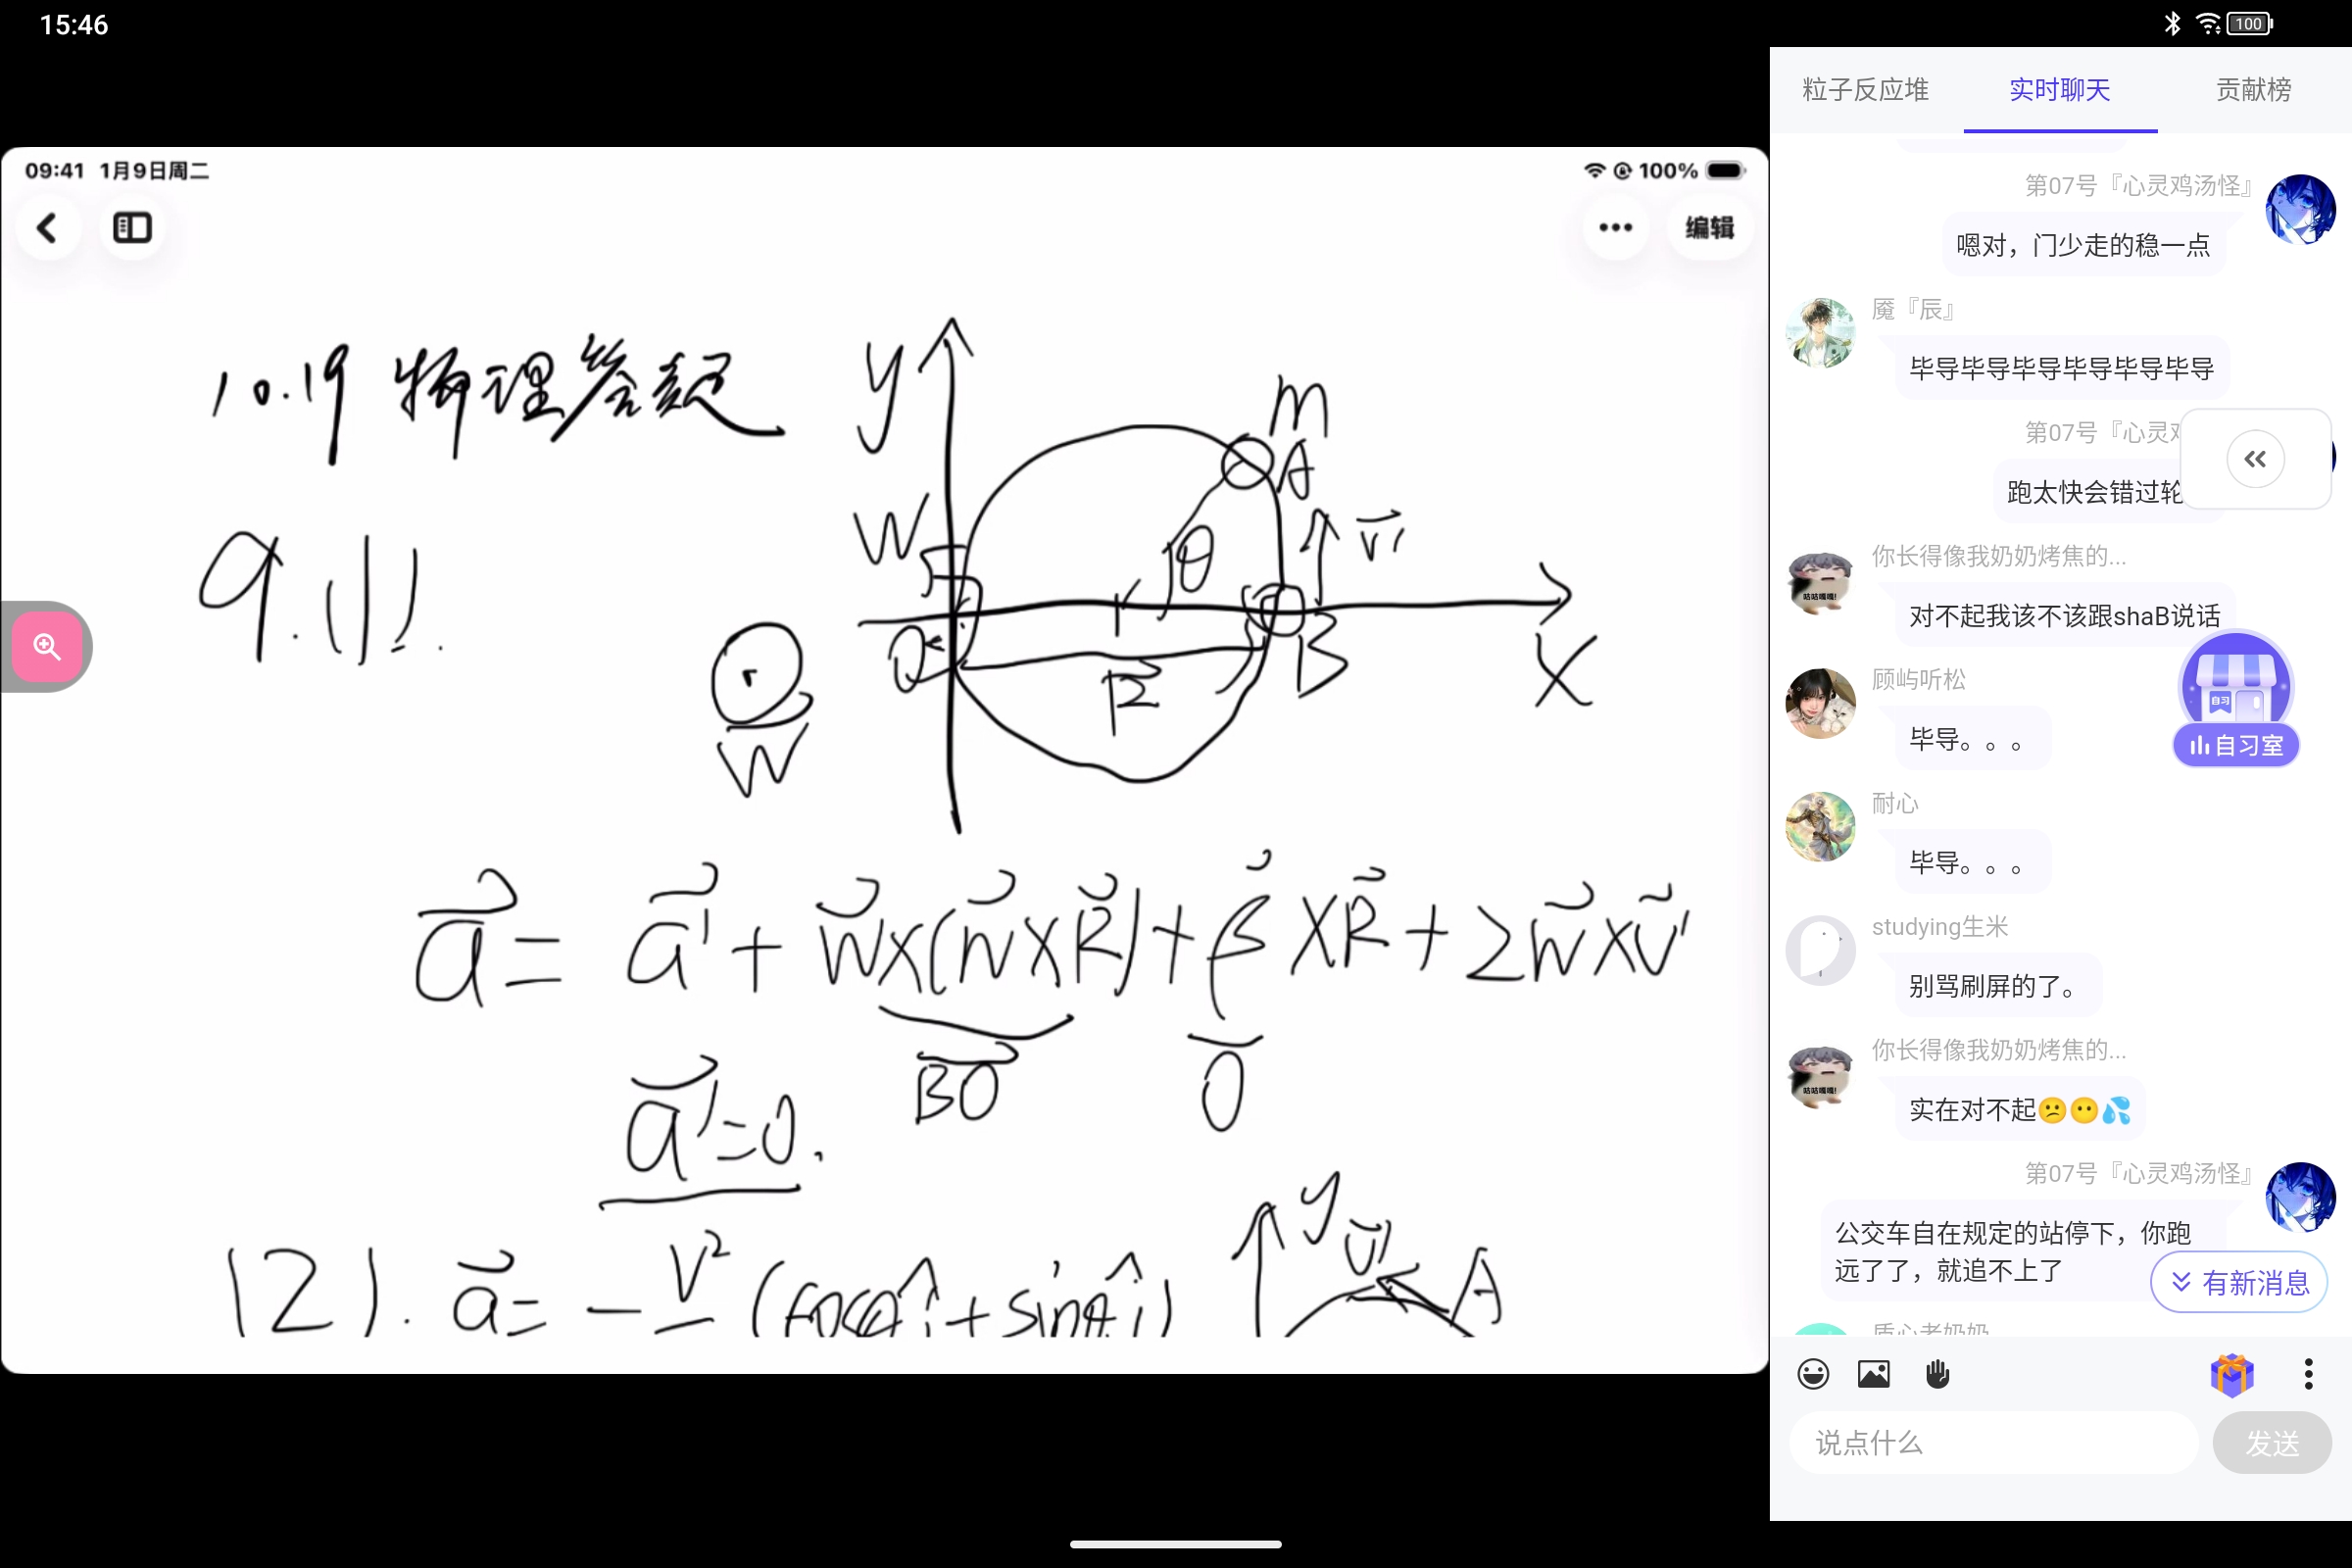 15:46
100
09:41 1月9日周二
100%
编辑
10.19 物理答疑
9.(1).
y
m
A
W
θ
v⃗'
O
B
R
X
W
a⃗ = a⃗' + w⃗×(w⃗×R⃗) + β⃗×R⃗ + 2w⃗×v⃗'
BO⃗
0
a⃗'=0.
(2). a⃗ = - v²(cosθ î + sinθ ĵ)
y
v⃗'
A
粒子反应堆
实时聊天
贡献榜
第07号『心灵鸡汤怪』
嗯对，门少走的稳一点
魇『辰』
毕导毕导毕导毕导毕导毕导
第07号『心灵
跑太快会错过轮
你长得像我奶奶烤焦的...
对不起我该不该跟shaB说话
顾屿听松
毕导。。。
自习
自习室
耐心
毕导。。。
studying生米
别骂刷屏的了。
你长得像我奶奶烤焦的...
实在对不起😕😶💦
第07号『心灵鸡汤怪』
公交车自在规定的站停下，你跑
远了了，就追不上了
有新消息
说点什么
发送